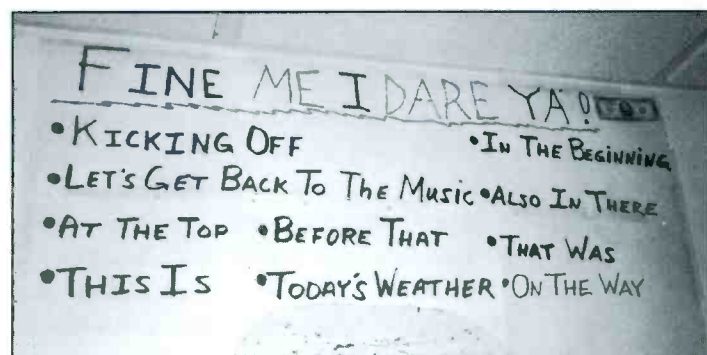 FINE ME I DARE YA!
•KICKING OFF •IN THE BEGINNING
•LET'S GET BACK TO The Music •ALSO IN THERE
•AT THE TOP •BEFORE THAT •THAT WAS
•THIS IS •TODAY'S WEATHER •ON THE WAY